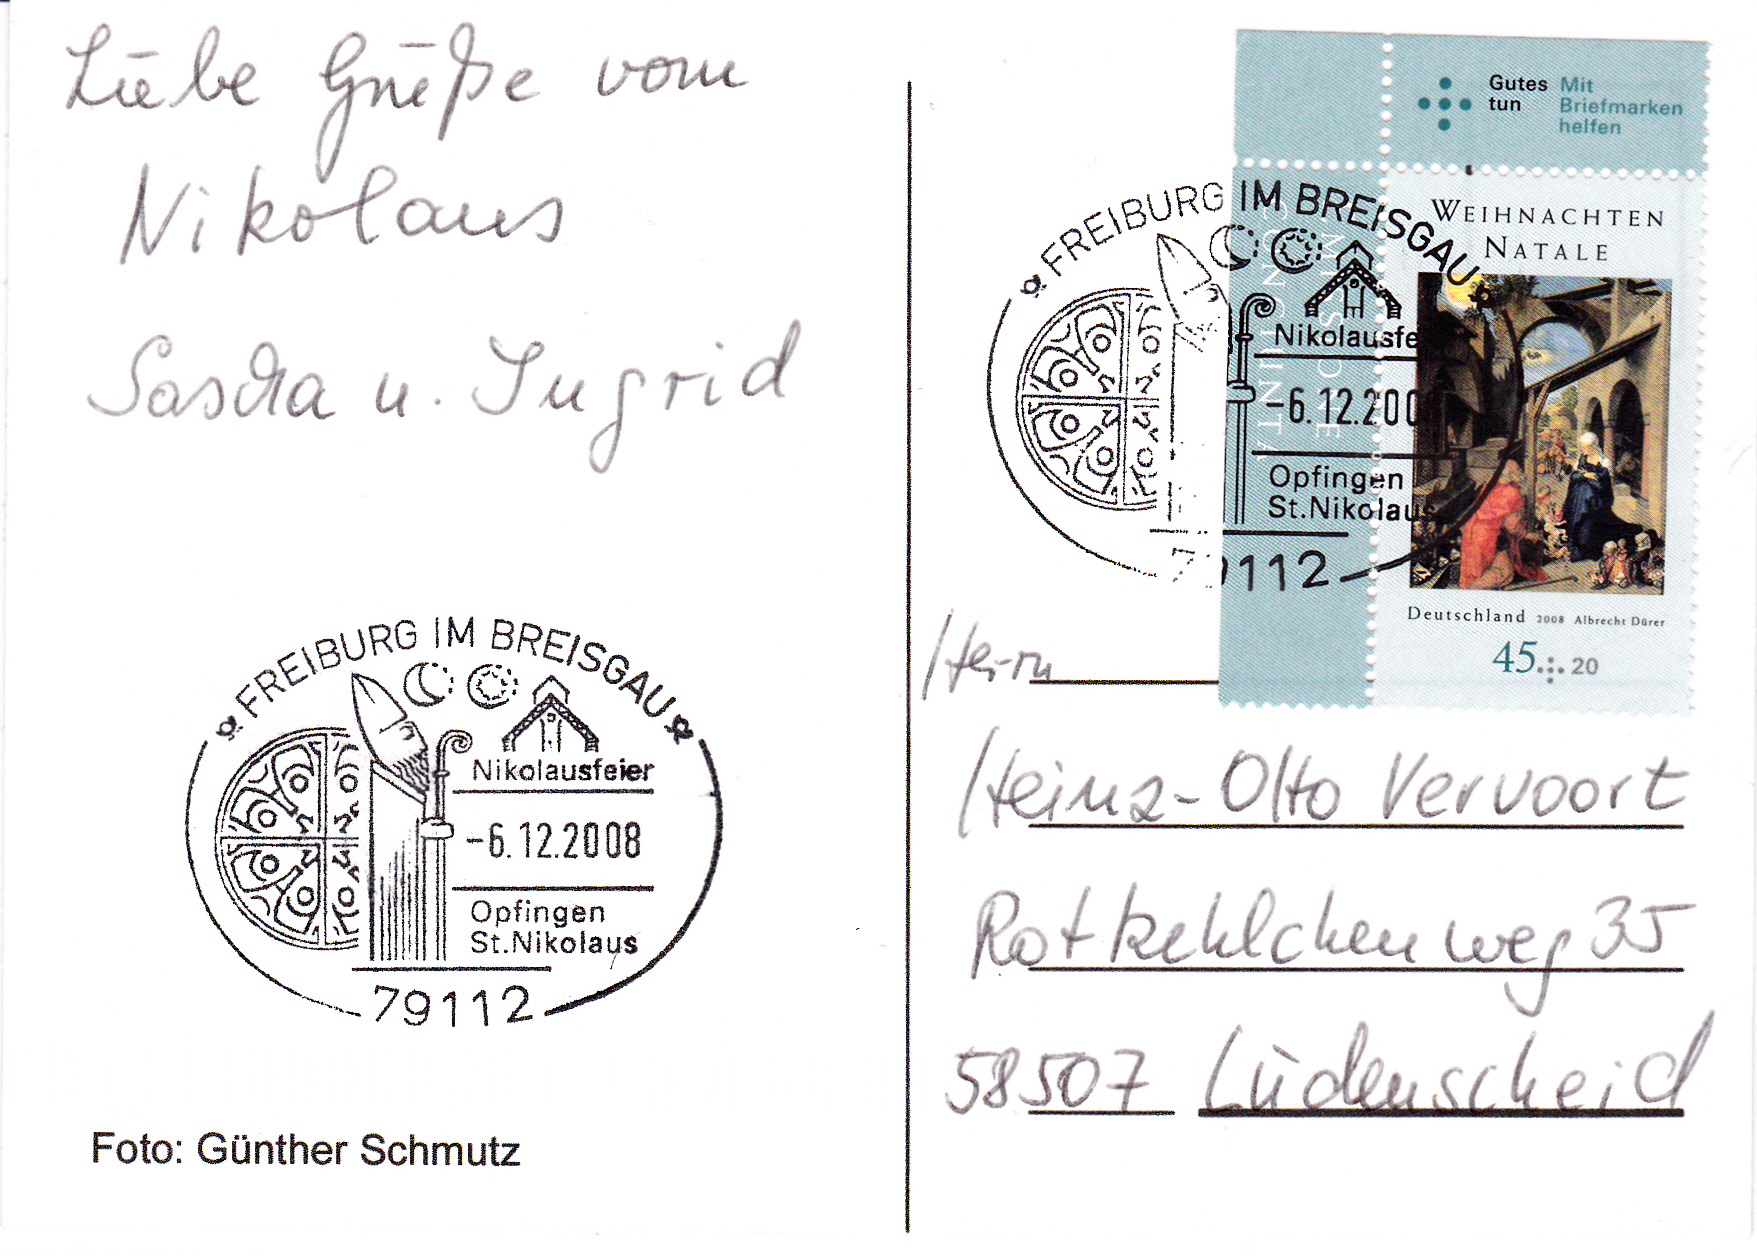 Liebe Grüße vom
Nikolaus
Sascha u. Ingrid
FREIBURG IM BREISGAU
Nikolausfeier
-6.12.2008
Opfingen
St.Nikolaus
79112
Foto: Günther Schmutz
Gutes tun
Mit Briefmarken helfen
WEIHNACHTEN
NATALE
Deutschland 2008 Albrecht Dürer
45 20
FREIBURG IM BREISGAU
Nikolausfe
-6.12.200
Opfingen
St.Nikolaus
79112
Herrn
Heinz-Otto Vervoort
Rotkehlchenweg 35
58507 Lüdenscheid